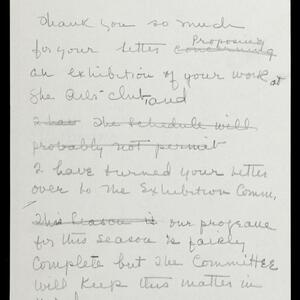 Thank you so much
for your letter concerning Proposing
an exhibition of your work at
The Arts Club, and
I have The Schedule will
probably not permit
I have turned your letter
over to the Exhibition Comm,
This Season is our programe
for this season is fairly
complete but The Committee
will keep this matter in